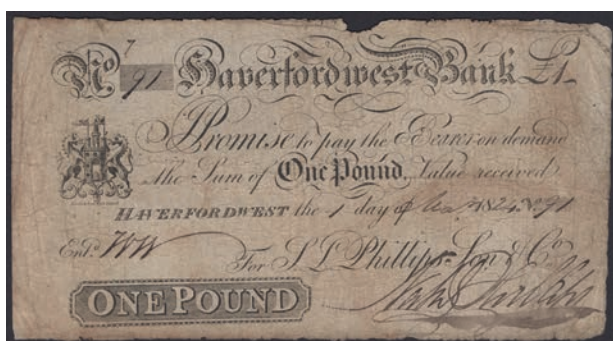 7
No 91 Haverfordwest Bank £1
Promise to pay the Bearer on demand
the Sum of One Pound, Value received
HAVERFORDWEST the 1 day of 1824 No 91
Entd.
For S L Phillips Son & Co
ONE POUND